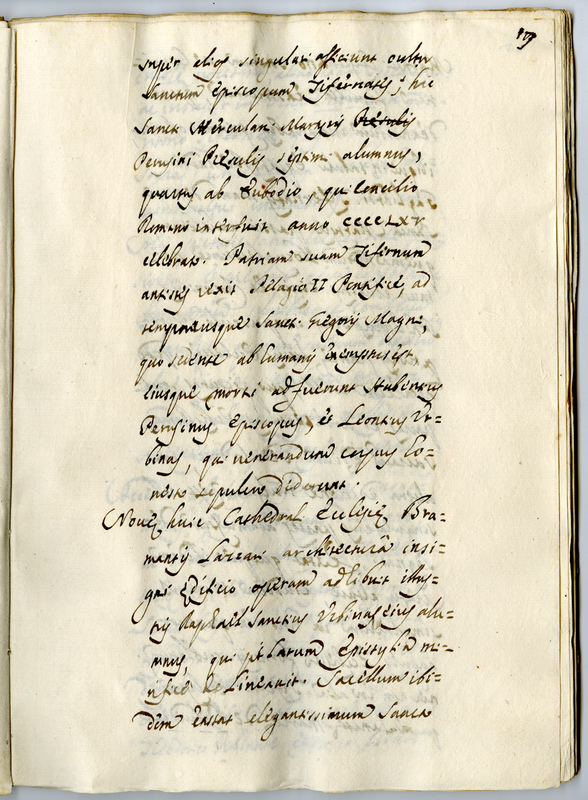 19
super eligs singulari afficiunt cultu
Sanctum Episcopum Tifernatis; hic
Sancti Herculani Martyris Præsulis
Perusini Præsulis septimi alumnus,
quartus ab Eubodio, qui Concilio
Romano interfuit anno CCCCLXV
celebrato. Patriam suam Tifernum
antistes rexit Pelagio II Pontifice, ad
temporausque Sancti Gregorij Magni,
quo sedente ab humanis exemptus est,
eiusque morti adfuerunt Hubertus
Perusinus Episcopus, et Leontius Ur=
binas, qui venerandum corpus ho=
nesto sepulcro dederunt.
Novæ huic Cathedrali Ecclesiæ Bra=
mantis Lazzari architectura insi=
gni Ædificio operam adhibuit illus=
tris Raphael Sanctius Urbinas eius alu=
mnus, qui Latum Epistylia mi=
rifice delineavit. Sacellum ibi=
dem extat elegantissimum Sancto